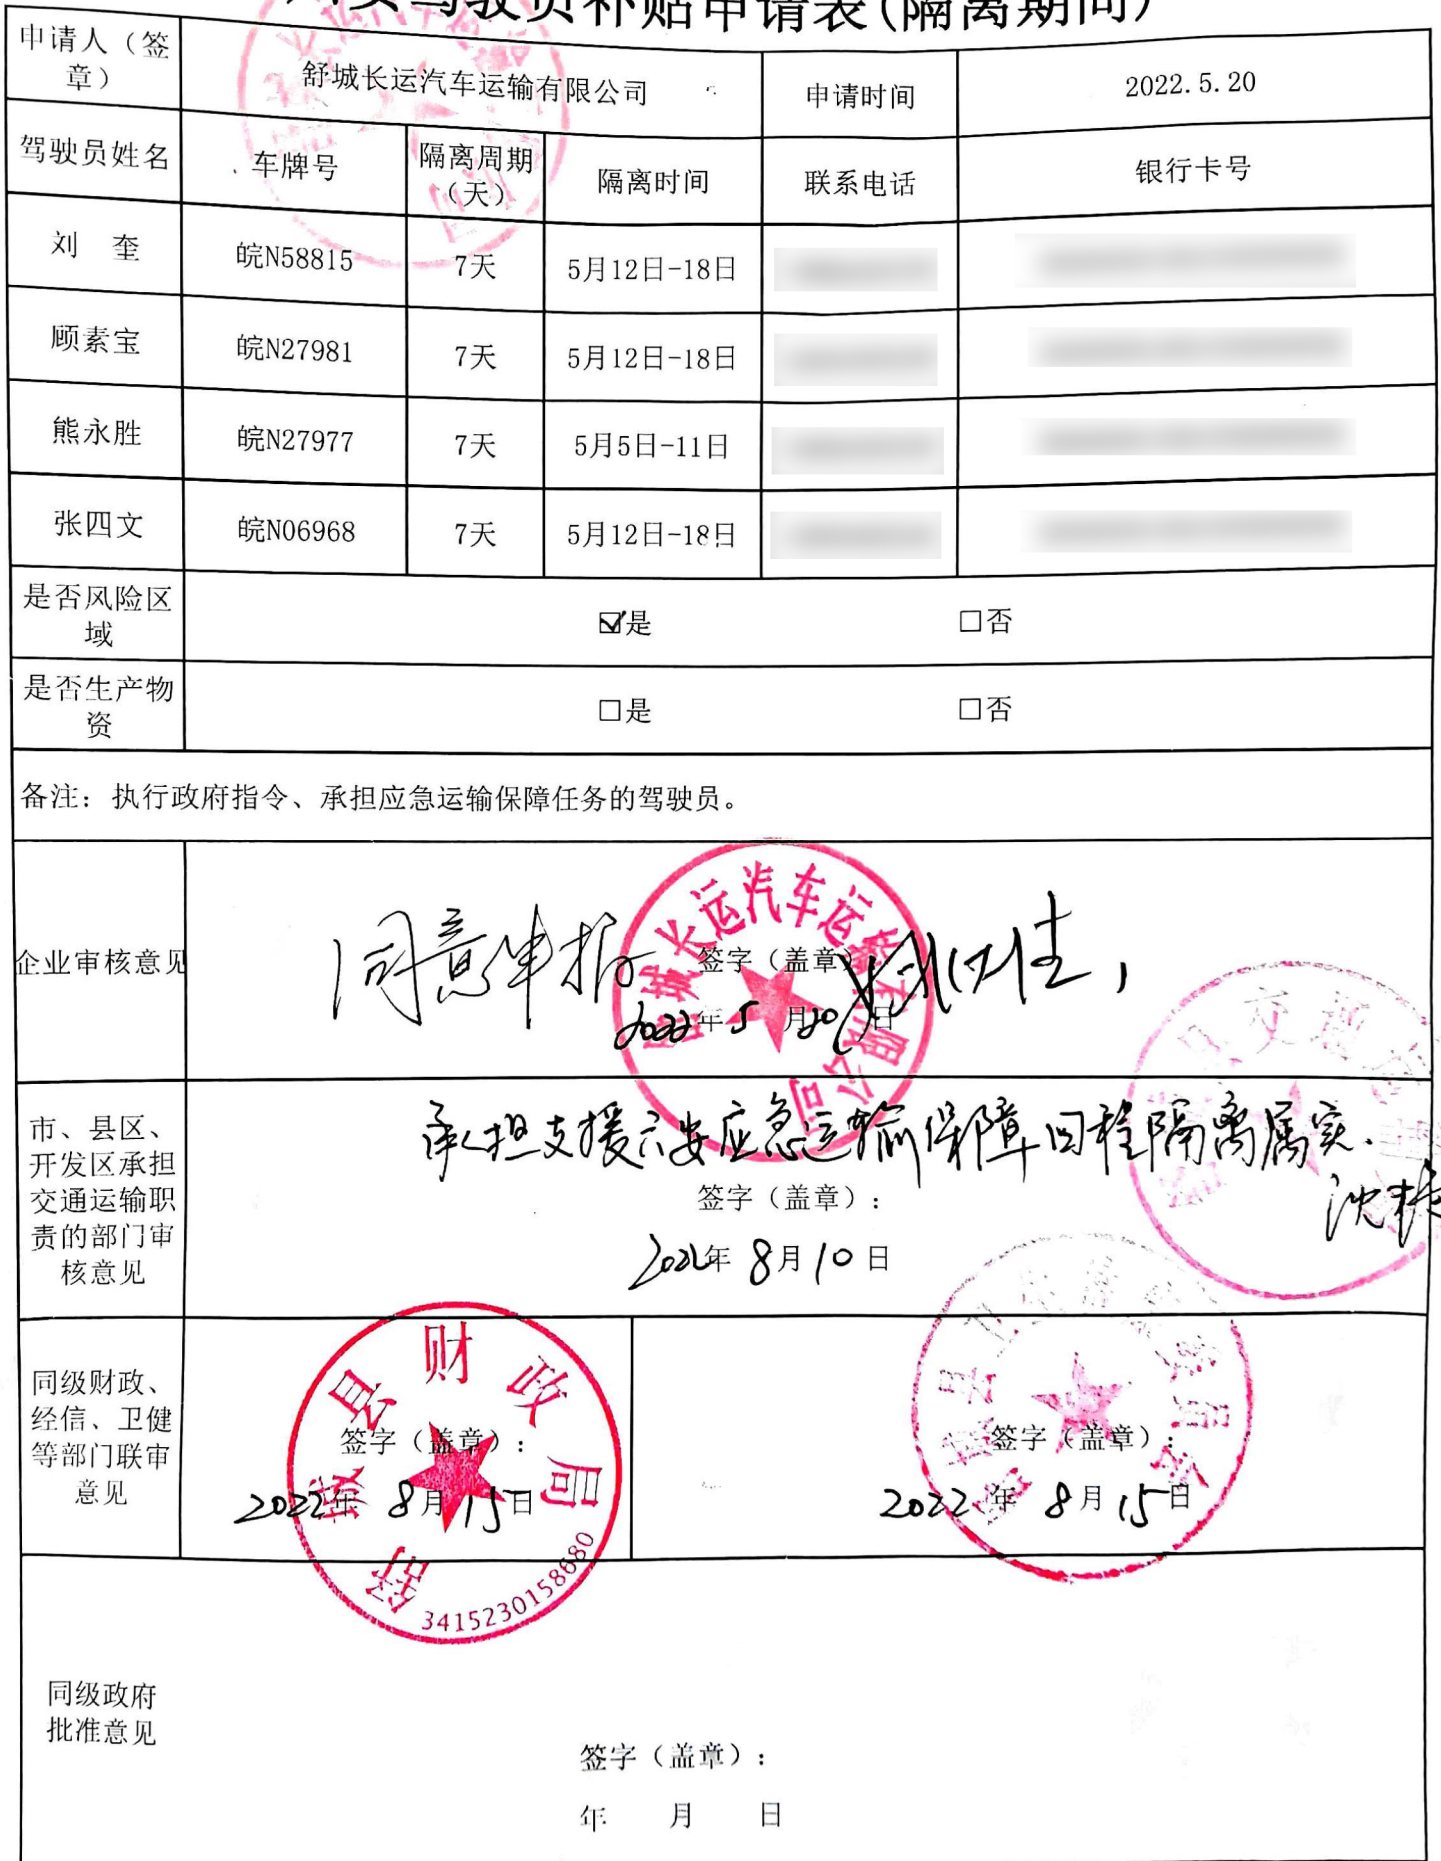 驾驶员补贴申请表(隔离期间)
申请人（签章）
舒城长运汽车运输有限公司
申请时间
2022.5.20
驾驶员姓名
车牌号
隔离周期（天）
隔离时间
联系电话
银行卡号
刘 奎
皖N58815
7天
5月12日-18日
顾素宝
皖N27981
7天
5月12日-18日
熊永胜
皖N27977
7天
5月5日-11日
张四文
皖N06968
7天
5月12日-18日
是否风险区域
☑是
□否
是否生产物资
□是
□否
备注：执行政府指令、承担应急运输保障任务的驾驶员。
企业审核意见
同意申报
签字（盖章
2022年5月20日
城长运汽车运输有限公司
市、县区、
开发区承担
交通运输职
责的部门审
核意见
承担支援六安应急运输保障回程隔离属实.
签字（盖章）：
2022年8月10日
同级财政、
经信、卫健
等部门联审
意见
舒城县财政局
3415230158680
签字（盖章）：
2022年8月15日
签字（盖章）：
2022年8月15日
同级政府
批准意见
签字（盖章）：
年 月 日